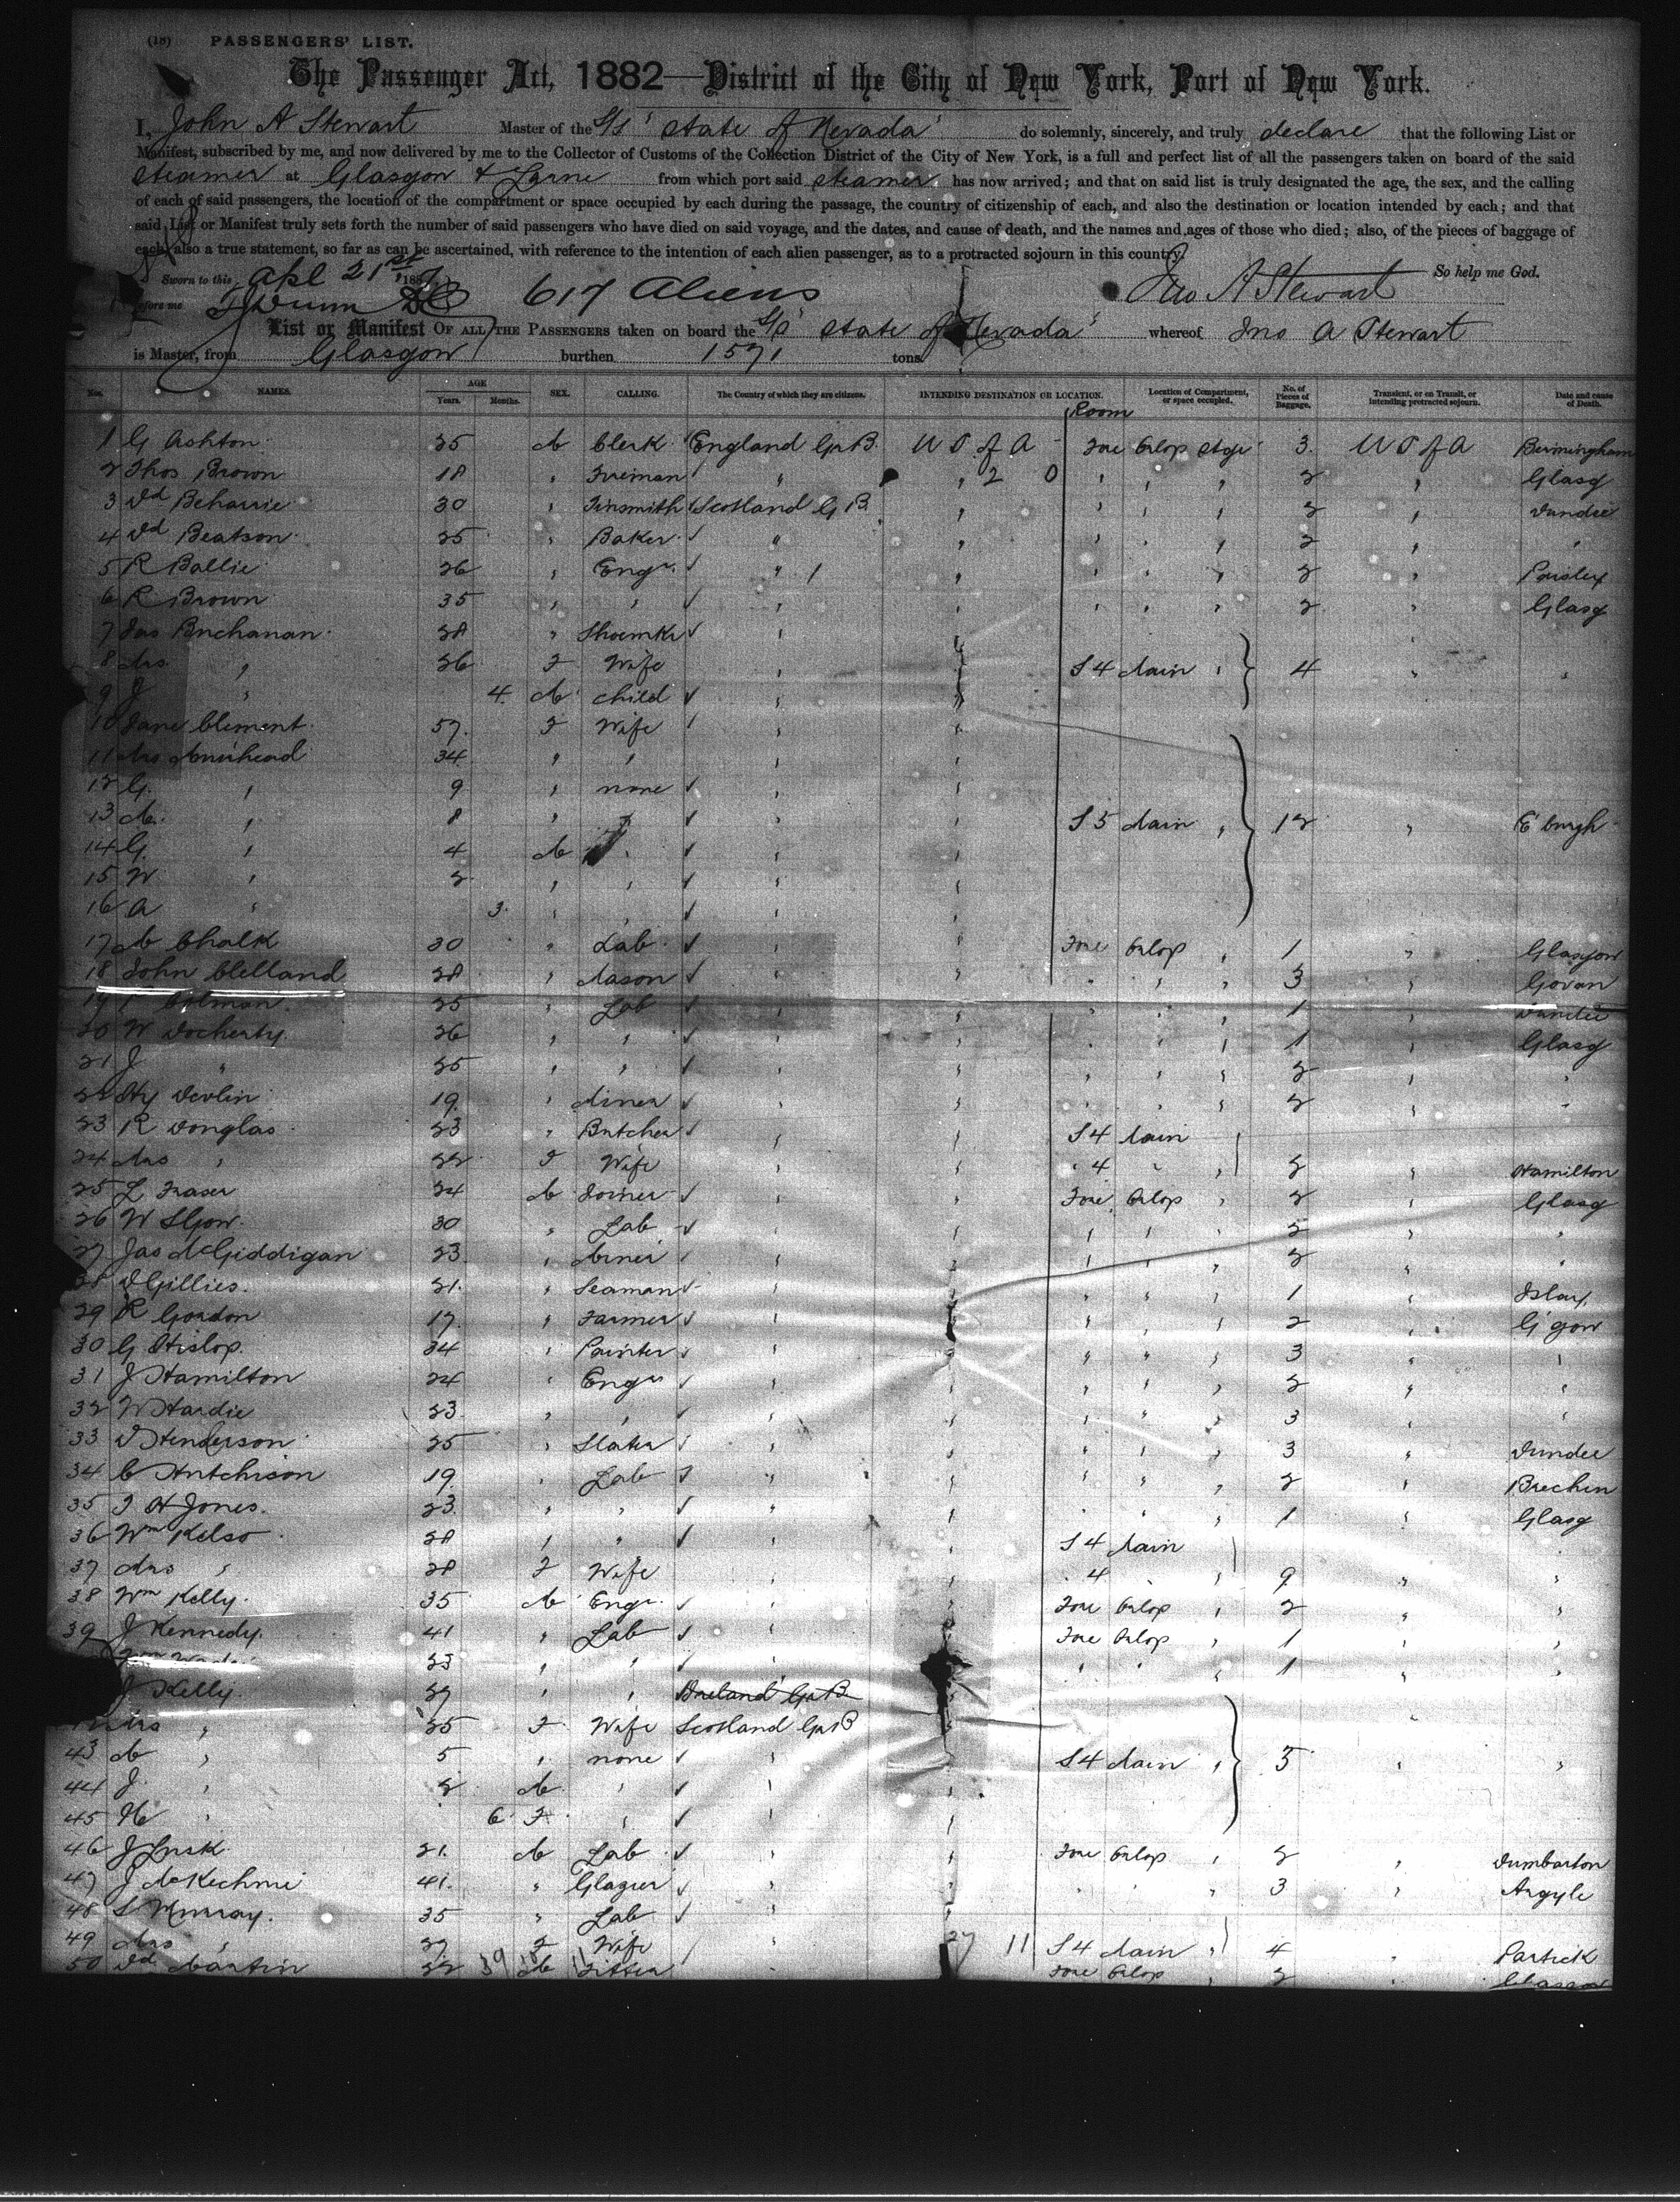 (18) PASSENGERS' LIST.
The Passenger Act, 1882—District of the City of New York, Port of New York.
I, John A Stewart Master of the S/S "State of Nevada" do solemnly, sincerely, and truly declare that the following List or
Manifest, subscribed by me, and now delivered by me to the Collector of Customs of the Collection District of the City of New York, is a full and perfect list of all the passengers taken on board of the said
Steamer at Glasgow & Larne from which port said Steamer has now arrived; and that on said list is truly designated the age, the sex, and the calling
of each of said passengers, the location of the compartment or space occupied by each during the passage, the country of citizenship of each, and also the destination or location intended by each; and that
said List or Manifest truly sets forth the number of said passengers who have died on said voyage, and the dates, and cause of death, and the names and ages of those who died; also, of the pieces of baggage of
each; also a true statement, so far as can be ascertained, with reference to the intention of each alien passenger, as to a protracted sojourn in this country.
Sworn to this Apl 21st 188 So help me God.
before me 617 Aliens Jno A Stewart
List or Manifest OF ALL THE PASSENGERS taken on board the S/S "State of Nevada" whereof Jno A Stewart
is Master, from Glasgow burthen 1571 tons.
No. NAMES. AGE Years. Months. SEX. CALLING. The Country of which they are citizens. INTENDING DESTINATION OR LOCATION. Location of Compartment, or space occupied. No. of Pieces of Baggage. Transient, or on Transit, or intending protracted sojourn. Date and cause of Death.
Room
1 G Ashton 25 M Clerk England Gt B. U S of A Fore Orlop Stge 3 U S of A Birmingham
2 Thos Brown 18 " Fireman " " 2 0 " " " 2 " Glasg
3 Dd Beharrie 30 " Tinsmith Scotland G B. " " " " 2 " Dundee
4 Dd Beatson 25 " Baker " " " " " 2 " "
5 R Ballie 26 " Engr " " " " " 2 " Paisley
6 R Brown 35 " " " " " " 2 " Glasg
7 Jas Buchanan 28 " Shoemkr " "
8 Mrs " 26 F Wife " " S 4 Main " 4 " "
9 J " 4 M child " "
10 Jane Clement 57 F Wife " "
11 Mrs Muirhead 34 " " " "
12 G " 9 " none " "
13 M " 8 " " " " S 5 Main " 12 " E'burgh
14 G " 4 M " " "
15 W " 2 " " " "
16 A " 3 " " " "
17 M Chalk 30 " Lab " " Fore Orlop " 1 " Glasgow
18 John Clelland 28 " Mason " " " " " 3 " Govan
19 Colman 25 " Lab " " " " " 1 " Dundee
20 W Docherty 26 " " " " " " " 1 " Glasg
21 J " 25 " " " " " " " 2 " "
22 Hy Devlin 19 " Miner " " " " " 2 " "
23 R Douglas 23 " Butcher " " S 4 Main
24 Mrs " 22 F Wife " " " 4 " " 2 " Hamilton
25 L Fraser 24 M Joiner " " Fore Orlop " 2 " Glasg
26 W Gow 30 " Lab " " " " " 2 " "
27 Jas McGiddigan 23 " Miner " " " " " 2 " "
28 D Gillies 21 " Seaman " " " " " 1 " Islay
29 R Gordon 17 " Farmer " " " " " 2 " G'gow
30 G Hislop 34 " Painter " " " " " 3 " "
31 J Hamilton 24 " Engr " " " " " 2 " "
32 W Hardie 23 " " " " " " " 3 " "
33 D Henderson 25 " Slater " " " " " 3 " Dundee
34 C Hutchison 19 " Lab " " " " " 2 " Brechin
35 J H Jones 23 " " " " " " " 1 " Glasg
36 Wm Kelso 28 " " " " S 4 Main
37 Mrs " 28 F Wife " " " 4 " " 9 " "
38 Wm Kelly 35 M Engr " " Fore Orlop " 2 " "
39 J Kennedy 41 " Lab " " Fore Orlop " 1 " "
23 " " " " " " " 1 " "
J Kelly 27 " " Ireland Gt B
Mrs " 25 F Wife Scotland Gt B "
43 M " 5 " none " " S 4 Main " 5 " "
44 J " 2 M " " "
45 H " 6 F " " "
46 J Lusk 21 M Lab " " Fore Orlop " 2 " Dumbarton
47 J McKechnie 41 " Glazier " " " " " 3 " Argyle
48 S Murray 35 " Lab " "
49 Mrs " 27 F Wife " 27 11 S 4 Main " 4 " Partick
50 Dd Martin 22 39 M 11 Fitter " Fore Orlop 2 " Glasgow